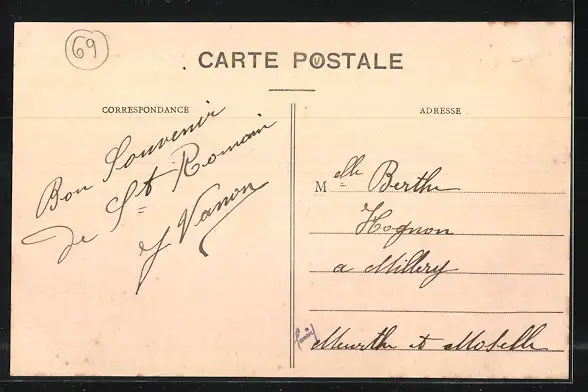 69
CARTE POSTALE
CORRESPONDANCE
Bon Souvenir
de St Romain
J Vanon
ADRESSE
Melle Berthe
Hognon
a Millery
Meurthe et Moselle